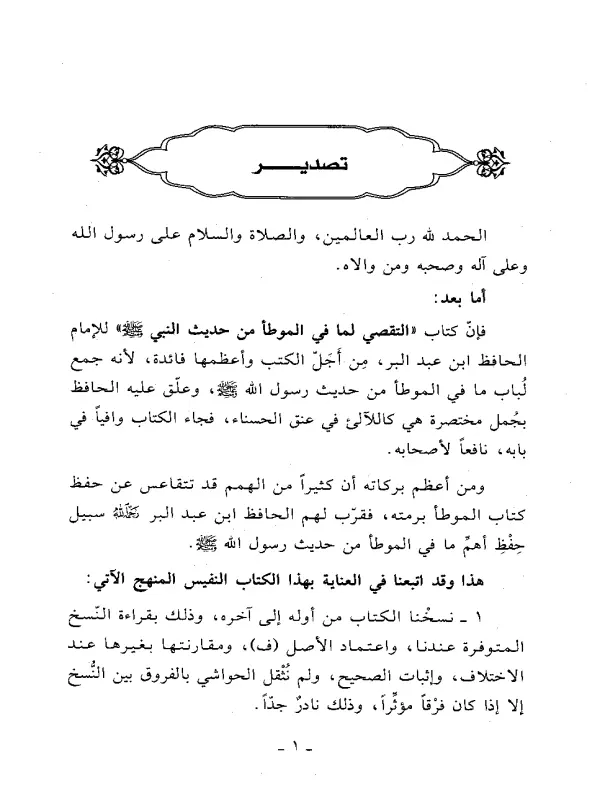 تصديـــر
الحمد لله رب العالمين، والصلاة والسلام على رسول الله
وعلى آله وصحبه ومن والاه.
أما بعد:
فإنّ كتاب «التقصي لما في الموطأ من حديث النبي ﷺ» للإمام
الحافظ ابن عبد البر، مِن أَجَلّ الكتب وأعظمها فائدة، لأنه جمع
لُباب ما في الموطأ من حديث رسول الله ﷺ، وعلّق عليه الحافظ
بجُمل مختصرة هي كاللآلئ في عنق الحسناء، فجاء الكتاب وافياً في
بابه، نافعاً لأصحابه.
ومن أعظم بركاته أن كثيراً من الهمم قد تتقاعس عن حفظ
كتاب الموطأ برمته، فقرّب لهم الحافظ ابن عبد البر رَحِمَهُ ٱللَّهُ سبيل
حِفْظِ أهمِّ ما في الموطأ من حديث رسول الله ﷺ.
هذا وقد اتبعنا في العناية بهذا الكتاب النفيس المنهج الآتي:
١ ـ نسخْنا الكتاب من أوله إلى آخره، وذلك بقراءة النّسخ
المتوفرة عندنا، واعتماد الأصل (ف)، ومقارنتها بغيرها عند
الاختلاف، وإثبات الصحيح، ولم نُثْقل الحواشي بالفروق بين النُّسخ
إلا إذا كان فرْقاً مؤثِّراً، وذلك نادرٌ جدّاً.
- ١ -